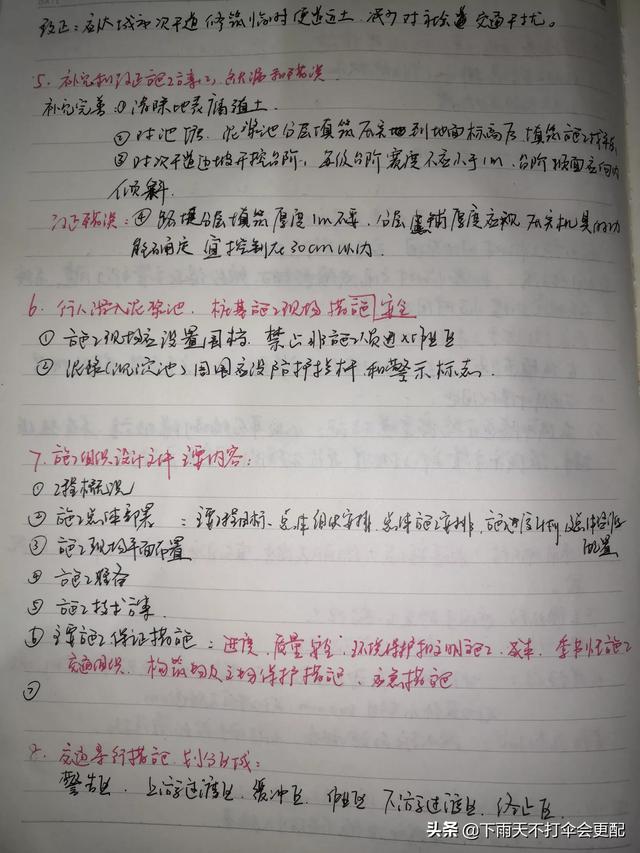 改正：应从城市次干道修筑临时便道运土，减少对主干道交通干扰。
5. 补充和改正施工方案(二)错漏和错误
补充完善：①清除地表腐殖土
②对池塘、泥浆池分层填筑压实地到地面标高后，填筑施工
③对次干道边坡开挖台阶，每级台阶宽度不应小于1m，台阶顶面应向内
倾斜.
改正错误：④路堤分层填筑厚度1m不妥，分层虚铺厚度应视压实机具的功
能确定 宜控制在30cm以内.
6. 行人滑入泥浆池，桩基施工现场措施 安全
①施工现场应设置围挡，禁止非施工人员进入作业区
②泥浆(沉淀池)周围应设防护栏杆和警示标志.
7. 施工组织设计文件主要内容：
①工程概况
②施工总体部署：主要工程目标、总体组织安排、总体施工安排、施工进度计划及总体资源
配置
③施工现场平面布置
④施工准备
⑤施工技术方案
⑥主要施工保证措施：进度、质量安全、环境保护和文明施工、成本、季节性施工
交通组织、构筑物及文物保护措施、应急措施
⑦
8. 交通导行措施.划分区域：
警告区、上游过渡区、缓冲区、作业区、下游过渡区、终止区.
头条 @下雨天不打伞会更配